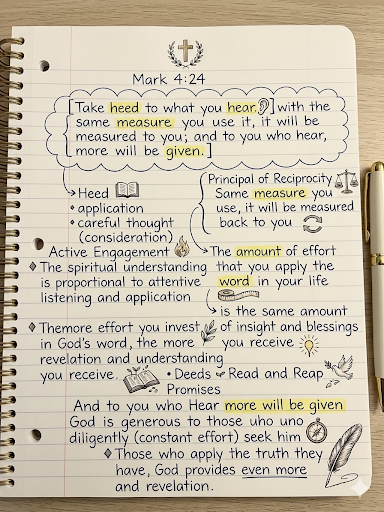 Mark 4:24
[Take heed to what you hear.] with the
same measure you use it, it will be
measured to you; and to you who hear,
more will be given.]
Heed
• application
• careful thought
(consideration)
Active Engagement
♦ The spiritual understanding
is proportional to attentive
listening and application
Principal of Reciprocity
Same measure you
use, it will be measured
back to you
The amount of effort
that you apply the
word in your life
is the same amount
of insight and blessings
you receive
♦ Themore effort you invest
in God's word, the more
revelation and understanding
you receive.
• Deeds Read and Reap
Promises
And to you who Hear more will be given
God is generous to those uho uno
diligently (constant effort) seek him
♦ Those who apply the truth they
have, God provides even more
and revelation.